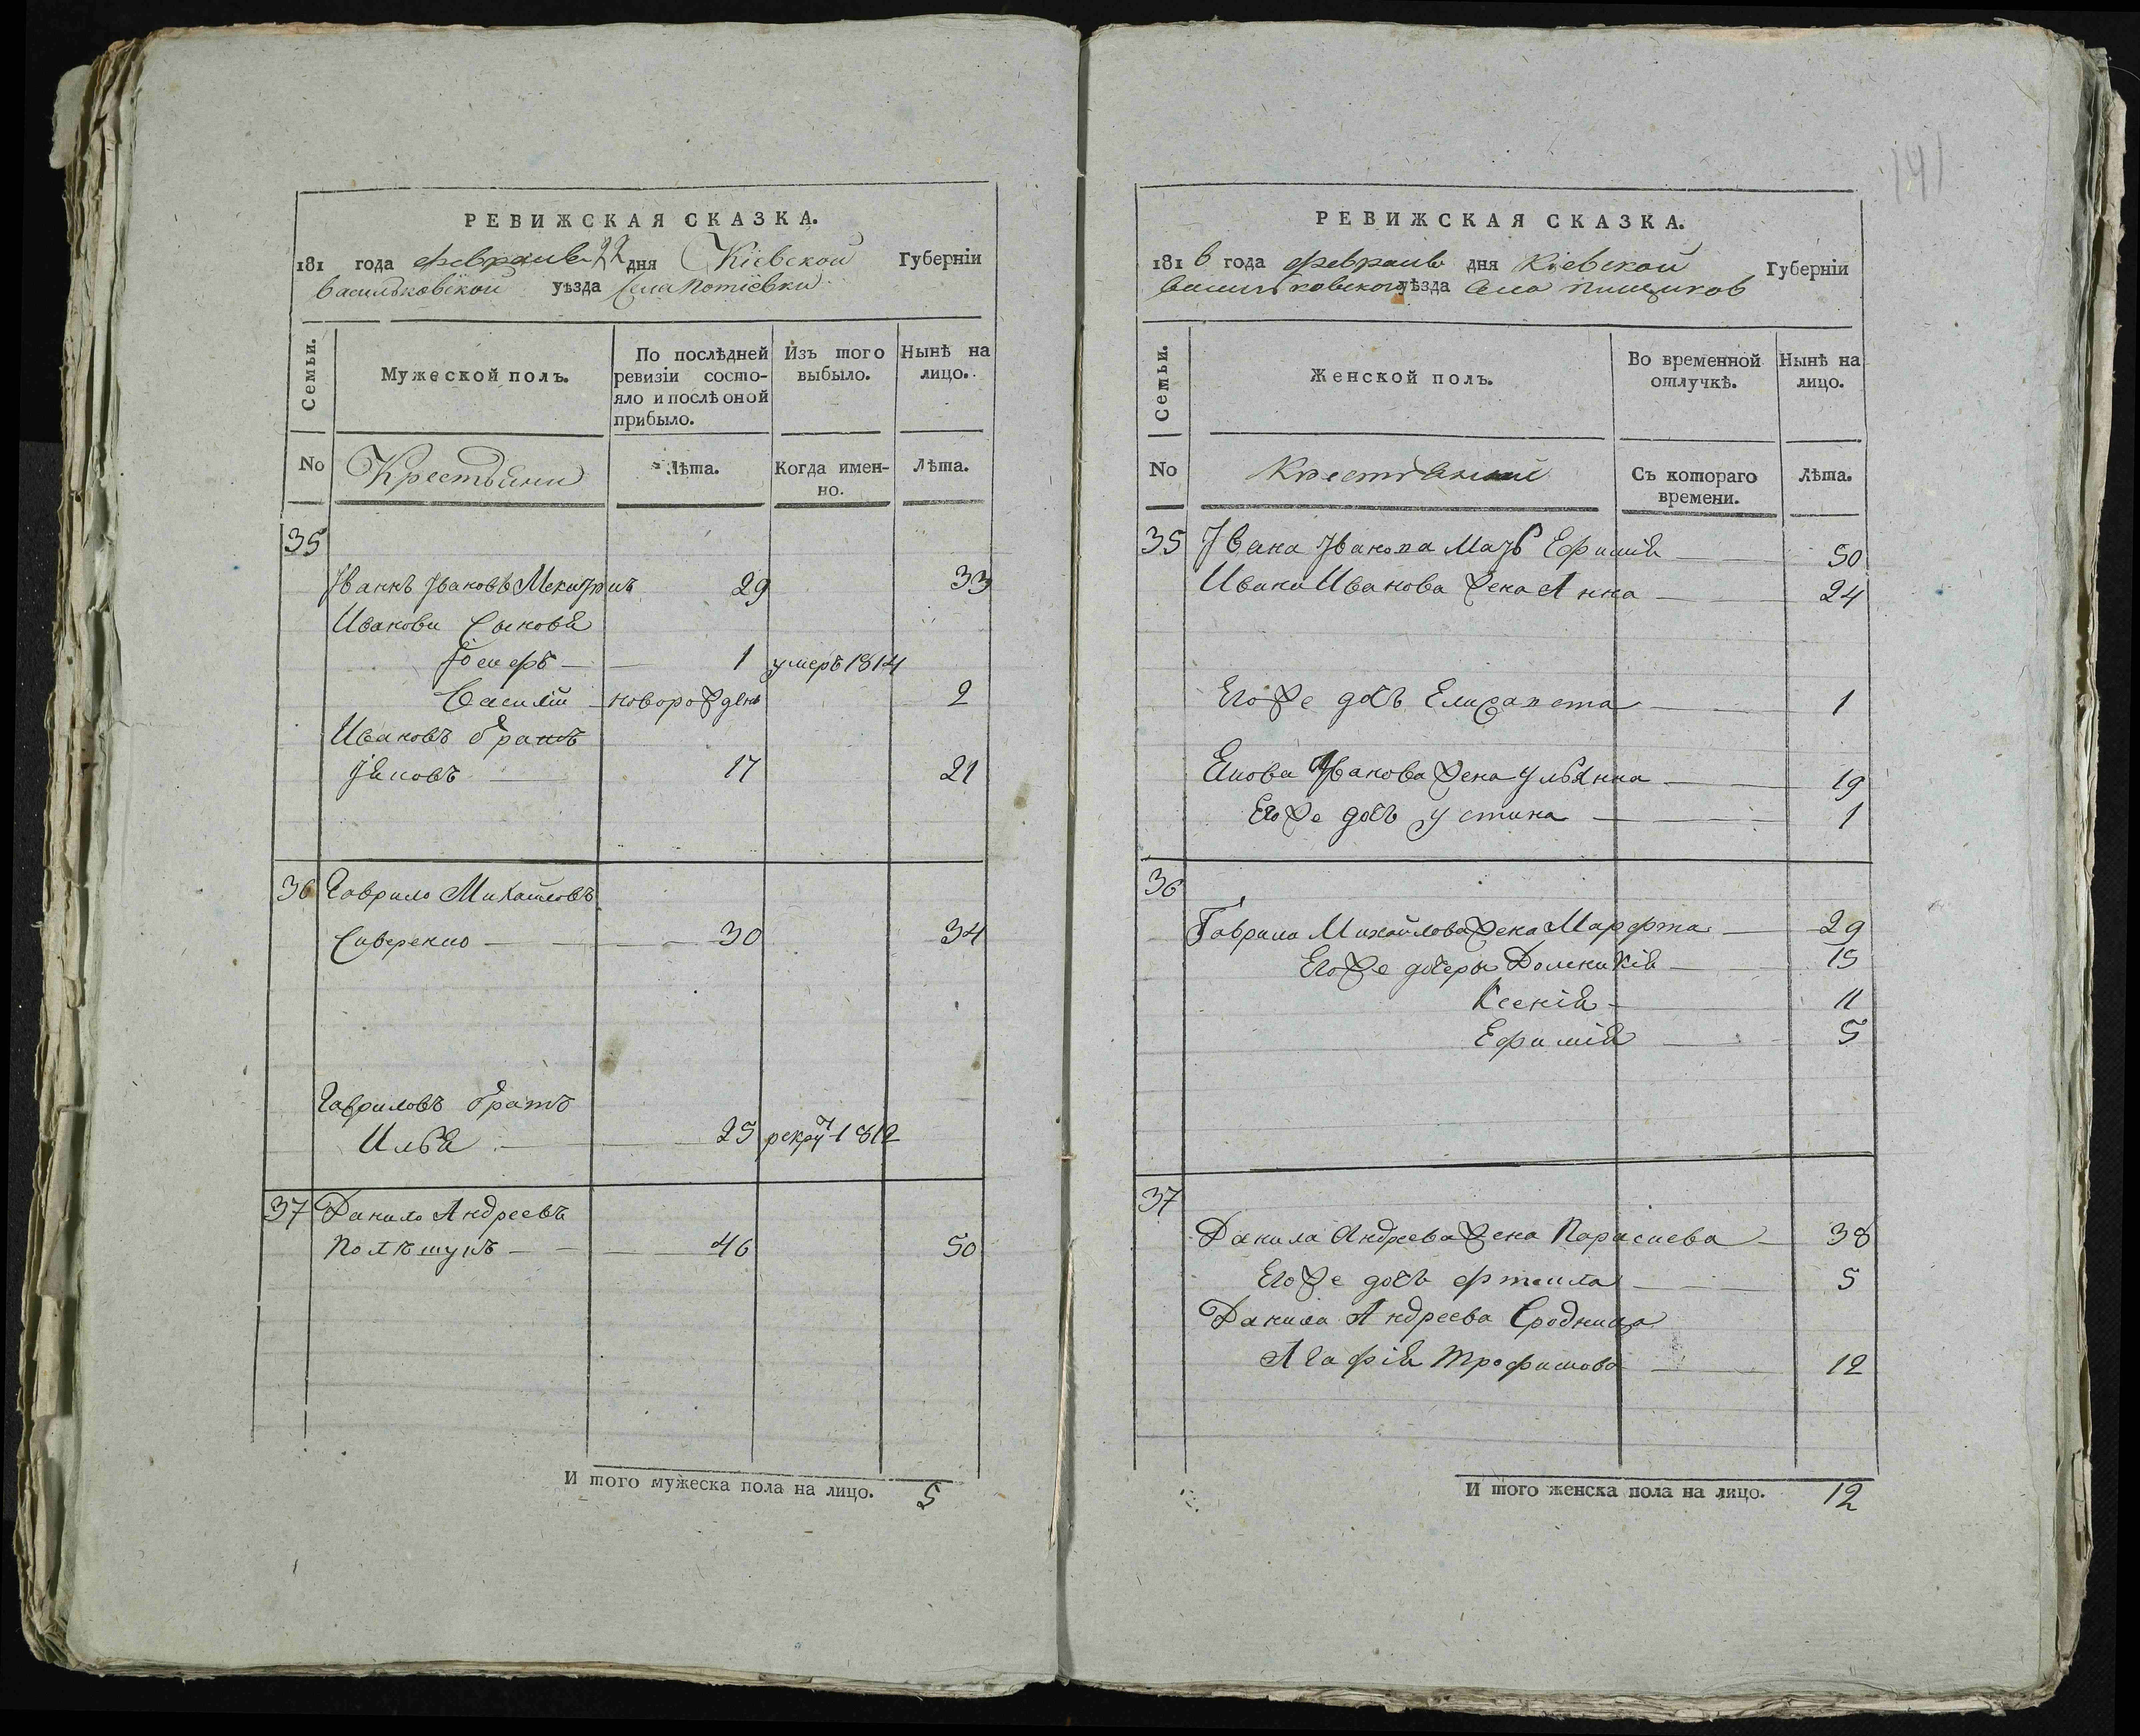 РЕВИЖСКАЯ СКАЗКА.
181 года февраля 22 дня Кіевской Губерніи
Васильковской уѣзда Села Потіевки
Семьи.
Мужеской полъ.
По послѣдней ревизіи состо-
яло и послѣ оной
прибыло.
Изъ того
выбыло.
Нынѣ на
лицо.
No
Крестьяни
Лѣта.
Когда имен-
но.
Лѣта.
35
Иванъ Ивановъ 29 33
Иванови Сыновя
Іосифъ 1 умеръ 1814
Василій новорожденъ 2
Ивановъ братъ
Яковъ 17 21
36 Гаврило Михайловъ
30 34
Гавриловъ братъ
Илья 25 рекрут 1812
37 Данило Андреевъ
Полѣщукъ 46 50
И того мужеска пола на лицо. 5
141
РЕВИЖСКАЯ СКАЗКА.
1816 года февраля дня Кіевской Губерніи
Васильковского уѣзда Села
Семьи.
Женской полъ.
Во временной
отлучкѣ.
Нынѣ на
лицо.
No
Крестьяни
Съ котораго
времени.
Лѣта.
35 Ивана Иванова Мать Ефимія 50
Ивана Иванова жена Анна 24
Его же дочь Елисавета 1
Якова Иванова жена Ульянна 19
Его же дочь Устина 1
36
Гаврила Михайлова жена Марфта 29
Его же дочеры Домникія 15
Ксенія 11
Ефимія 5
37
Данила Андреева жена Парасиева 38
Его же дочь 5
Данила Андреева Сродница
Агафія Трофимова 12
И того женска пола на лицо. 12